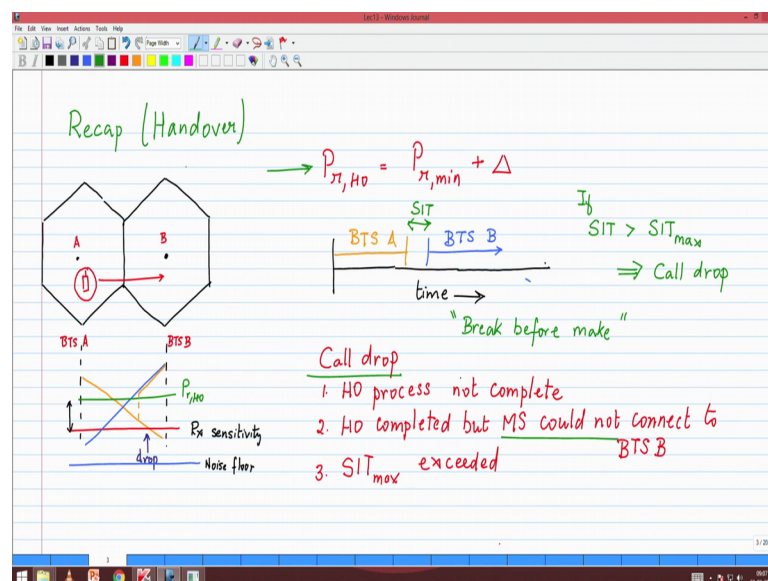 Lec13 - Windows Journal
File Edit View Insert Actions Tools Help
Page Width
B I
Recap (Handover)
→ P r,HO = P r,min + Δ
SIT
BTS A BTS B
time →
"Break before make"
If
SIT > SIT max
⇒ Call drop
A B
BTS A BTS B
P r,HO
Rx sensitivity
drop
Noise floor
Call drop
1. HO process not complete
2. HO completed but MS could not connect to
BTS B
3. SIT max exceeded
3
3/20
09:07